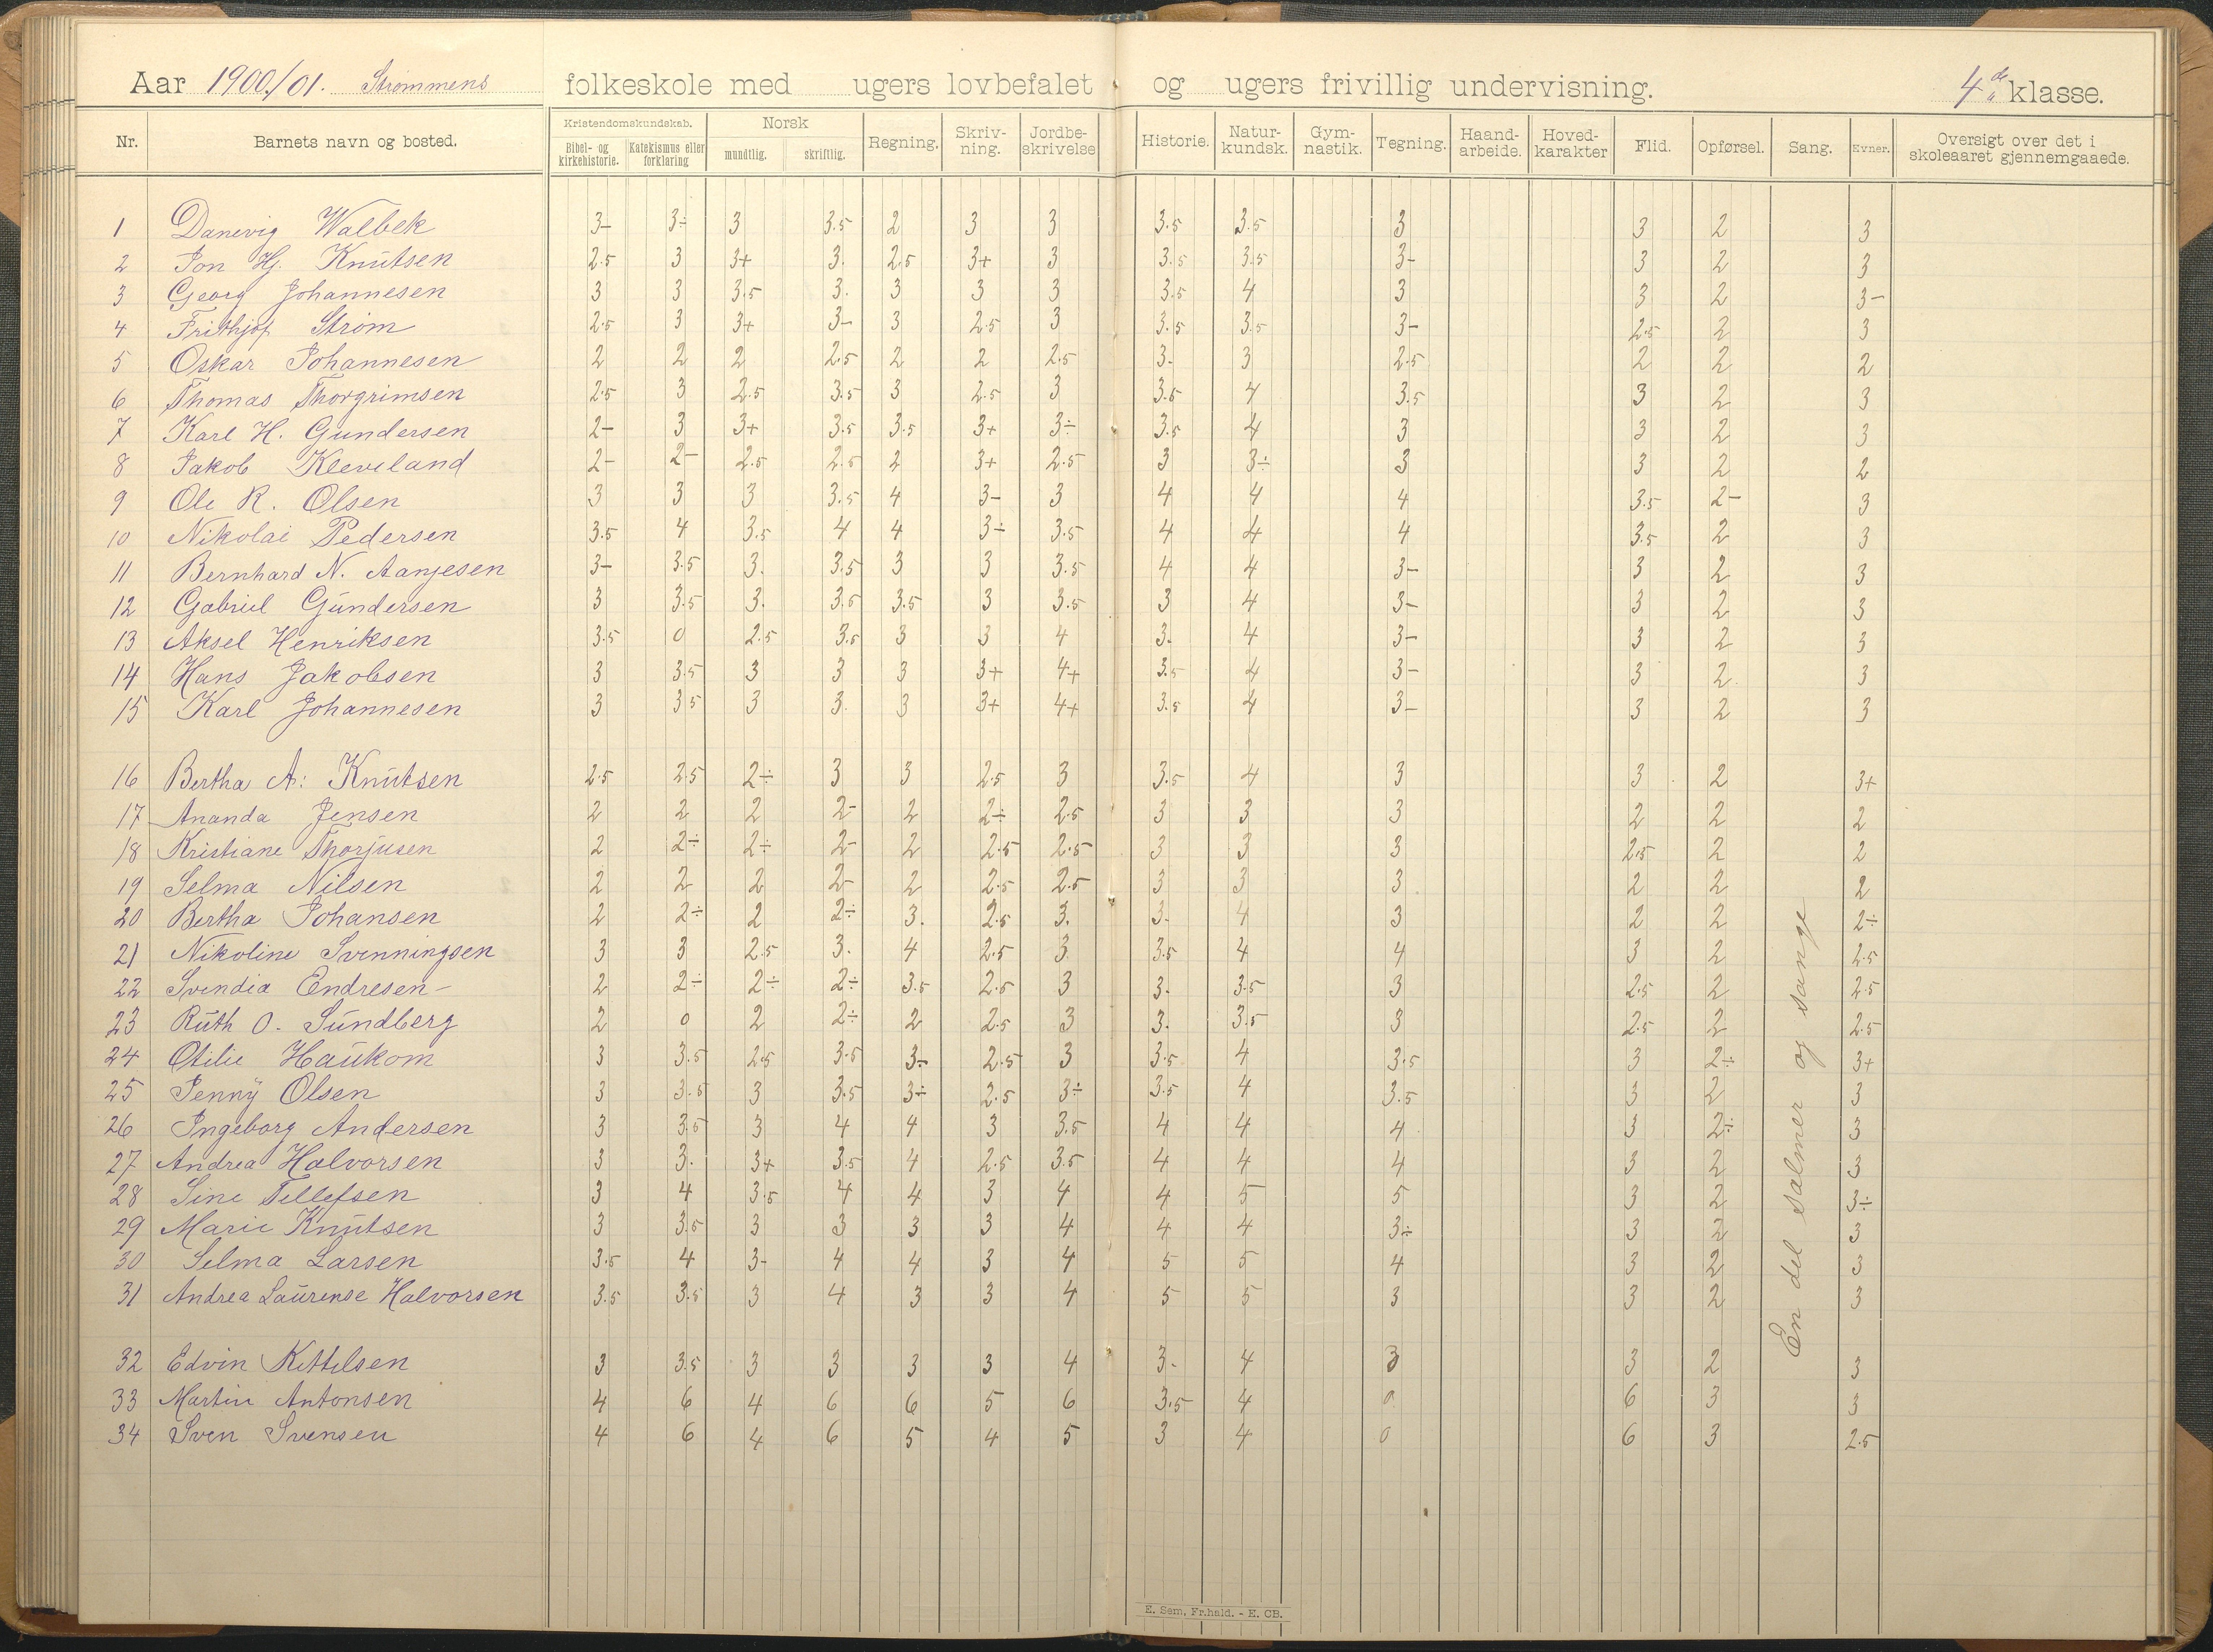 Aar 1900/01. Strømmens folkeskole med ugers lovbefalet og ugers frivillig undervisning. 4de klasse.
Nr. Barnets navn og bosted. Kristendomskundskab. Bibel- og kirkehistorie. Katekismus eller forklaring Norsk mundtlig. skriftlig. Regning. Skriv-ning. Jordbe-skrivelse Historie. Natur-kundsk. Gym-nastik. Tegning. Haand-arbeide. Hoved-karakter Flid. Opførsel. Sang. Evner. Oversigt over det i skoleaaret gjennemgaaede.
1 Danevig Walbek 3- 3÷ 3 3.5 2 3 3 3.5 3.5 3 3 2 3
2 Jon Hj. Knutsen 2.5 3 3+ 3. 2.5 3+ 3 3.5 3.5 3- 3 2 3
3 Georg Johannesen 3 3 3.5 3. 3 3 3 3.5 4 3 3 2 3-
4 Frithjof Strøm 2.5 3 3+ 3- 3 2.5 3 3.5 3.5 3- 2.5 2 3
5 Oskar Johannesen 2 2 2 2.5 2 2 2.5 3- 3 2.5 2 2 2
6 Thomas Thorgrimsen 2.5 3 2.5 3.5 3 2.5 3 3.5 4 3.5 3 2 3
7 Karl H. Gundersen 2- 3 3+ 3.5 3.5 3+ 3÷ 3.5 4 3 3 2 3
8 Jakob Kleveland 2- 2- 2.5 2.5 2 3+ 2.5 3 3÷ 3 3 2 2
9 Ole R. Olsen 3 3 3 3.5 4 3- 3 4 4 4 3.5 2- 3
10 Nikolai Pedersen 3.5 4 3.5 4 4 3÷ 3.5 4 4 4 3.5 2 3
11 Bernhard N. Aanjesen 3- 3.5 3. 3.5 3 3 3.5 4 4 3- 3 2 3
12 Gabriel Gundersen 3 3.5 3. 3.5 3.5 3 3.5 3 4 3- 3 2 3
13 Aksel Henriksen 3.5 0 2.5 3.5 3 3 4 3- 4 3- 3 2 3
14 Hans Jakobsen 3 3.5 3 3 3 3+ 4+ 3.5 4 3- 3 2 3
15 Karl Johannesen 3 3 5 3 3. 3 3+ 4+ 3.5 4 3- 3 2 3
16 Bertha A: Knutsen 2.5 2.5 2÷ 3 3 2.5 3 3.5 4 3 3 2 3+
17 Ananda Jensen 2 2 2 2- 2 2÷ 2.5 3 3 3 2 2 2
18 Kristiane Thorjusen 2 2÷ 2÷ 2- 2 2.5 2.5 3 3 3 2.5 2 2
19 Selma Nilsen 2 2 2 2- 2 2.5 2.5 3 3 3 2 2 2
20 Bertha Johansen 2 2÷ 2 2÷ 3. 2.5 3. 3- 4 3 2 2 2÷
21 Nikoline Svenningsen 3 3 2.5 3. 4 2.5 3 3.5 4 4 3 2 2.5
22 Svendia Endresen - 2 2÷ 2÷ 2÷ 3.5 2.5 3 3- 3.5 3 2.5 2 2.5
23 Ruth O. Sundberg 2 0 2 2÷ 2 2.5 3 3. 3.5 3 2.5 2 2.5
24 Otilie Haukom 3 3.5 2.5 3.5 3- 2.5 3 3.5 4 3.5 3 2÷ 3+
25 Jenny Olsen 3 3.5 3 3.5 3÷ 2.5 3÷ 3.5 4 3.5 3 2 3
26 Ingeborg Andersen 3 3.5 3 4 4 3 3.5 4 4 4 3 2÷ 3
27 Andrea Halvorsen 3 3. 3+ 3.5 4 2.5 3.5 4 4 4 3 2 3
28 Sine Tellefsen 3 4 3.5 4 4 3 4 4 5 5 3 2 3÷
29 Marie Knutsen 3 3.5 3 3 3 3 4 4 4 3÷ 3 2 3
30 Selma Larsen 3.5 4 3- 4 4 3 4 5 5 4 3 2 3
31 Andrea Laurense Halvorsen 3.5 3.5 3 4 3 3 4 5 5 3 3 2 3
En del salmer og sange
32 Edvin Kittilsen 3 3.5 3 3 3 3 4 3- 4 3 3 2 3
33 Martin Antonsen 4 6 4 6 6 5 6 3.5 4 0 6 3 3
34 Sven Svensen 4 6 4 6 5 4 5 3 4 0 6 3 2.5
E. Sem, Fr.hald. - E. CB.